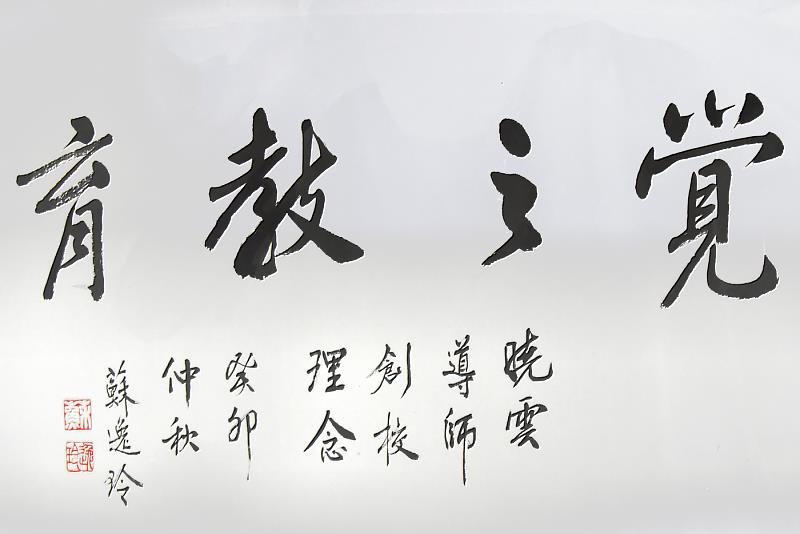 覺之教育
曉雲
導師
創校
理念
癸卯
仲秋
蘇逸玲